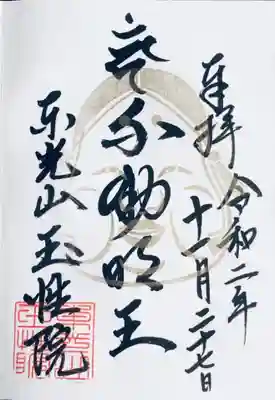 奉拝
令和二年
十一月二十七日
不動明王
東光山玉性院